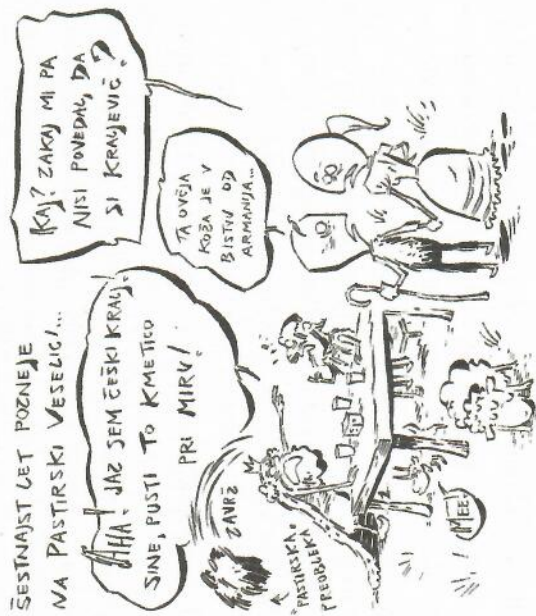 ŠESTNAJST LET POZNEJE
NA PASTIRSKI VESELICI...
AHA! JAZ SEM ČEŠKI KRALJ.
SINE, PUSTI TO KMETICO
PRI MIRU!
KAJ? ZAKAJ MI PA
NISI POVEDAL, DA
SI KRALJEVIČ?
TA OVČJA
KOŽA JE V
BISTVU OD
ARMANIJA...
ZAVRŽ
PASTIRSKA
PREOBLEKA
MEE!